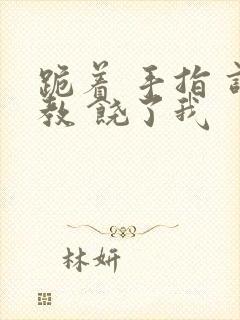 跪着 手指
教 饶了我
林妍